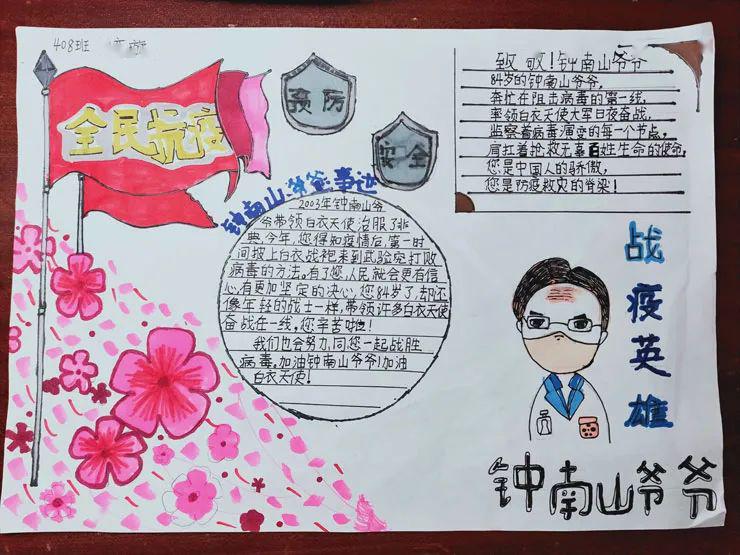 408班
全民抗疫
预防
安全
钟南山爷爷事迹
2003年钟南山爷
爷带领白衣天使治服了非
典,今年,您得知疫情后,第一时
间披上白衣战袍来到武验室打败
病毒的方法。有了您,人民就会更有信
心有更加坚定的决心,您84岁了,却还
像年轻的战士一样,带领许多白衣天使
奋战在一线,您辛苦啦!
我们也会努力,同您一起战胜
病毒。加油钟南山爷爷!加油
白衣天使!
致敬!钟南山爷爷
84岁的钟南山爷爷,
奔忙在阻击病毒的第一线,
率领白衣天使大军日夜奋战,
监察着病毒演变的每一个节点,
肩扛着抢救无辜百姓生命的使命,
您是中国人的骄傲,
您是防疫救灾的脊梁!
战疫英雄
钟南山爷爷